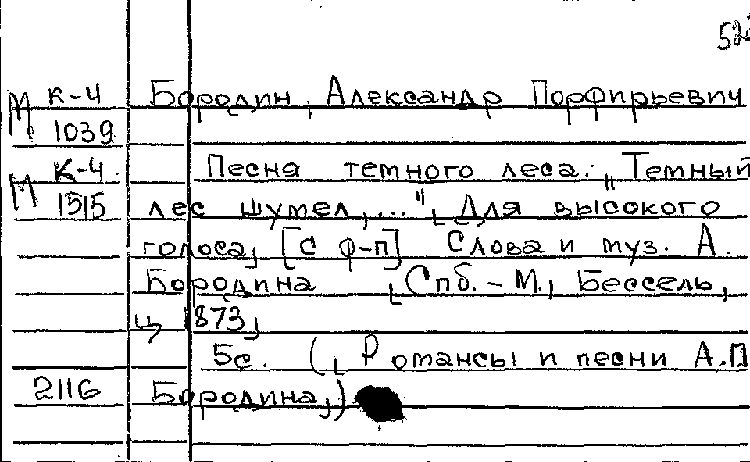 М К-4 Бородин, Александр Порфирьевич
1039
М К-4. Песня темного леса: „Темный
1515 лес шумел,..." Для высокого
голоса, [с ф-п] Слова и муз. А.
Бородина Спб. - М., Бессель,
ц 1873,
5с. (Романсы и песни А.П
2116 Бородина,)